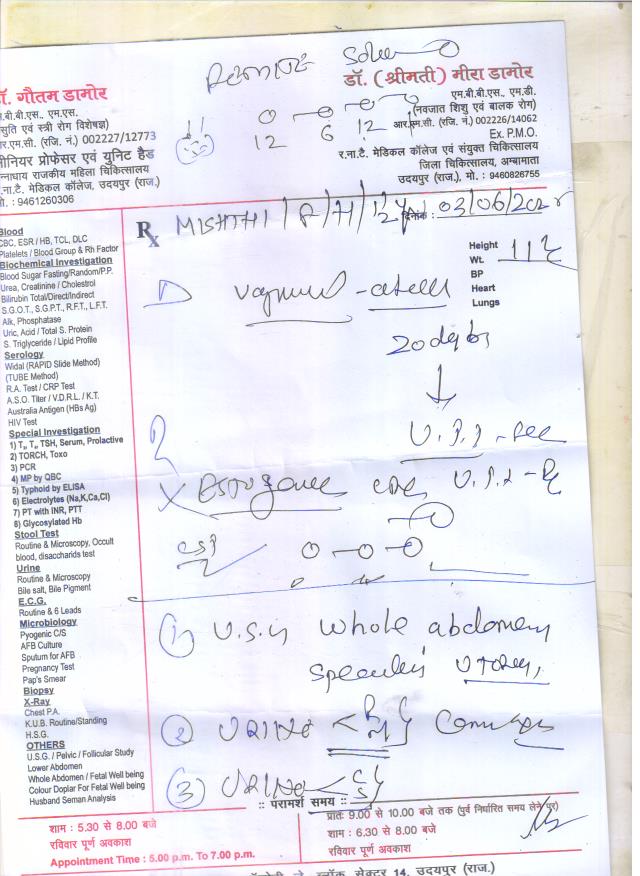 डॉ. गौतम डामोर
एम.बी.बी.एस., एम.एस.
(प्रसुति एवं स्त्री रोग विशेषज्ञ)
आर.एम.सी. (रजि. नं.) 002227/12773
सीनियर प्रोफेसर एवं युनिट हैड
पन्नाधाय राजकीय महिला चिकित्सालय
र.ना.टै. मेडिकल कॉलेज, उदयपुर (राज.)
मो. : 9461260306
डॉ. (श्रीमती) मीरा डामोर
एम.बी.बी.एस., एम.डी.
(नवजात शिशु एवं बालक रोग)
आर.एम.सी. (रजि. नं.) 002226/14062
Ex. P.M.O.
र.ना.टै. मेडिकल कॉलेज एवं संयुक्त चिकित्सालय
जिला चिकित्सालय, अम्बामाता
उदयपुर (राज.), मो. : 9460826755
12 6 12
Rx MISHTHI / F / H / 12 दिनांक : 03/06/202
Height
Wt. 11
BP
Heart
Lungs
20 days
U.T.I
(1) U.S.G Whole abdomen
(2) URINE
(3) URINE
Blood
CBC, ESR / HB, TCL, DLC
Platelets / Blood Group & Rh Factor
Biochemical Investigation
Blood Sugar Fasting/Random/P.P.
Urea, Creatinine / Cholestrol
Bilirubin Total/Direct/Indirect
S.G.O.T., S.G.P.T., R.F.T., L.F.T.
Alk, Phosphatase
Uric, Acid / Total S. Protein
S. Triglyceride / Lipid Profile
Serology
Widal (RAPID Slide Method)
(TUBE Method)
R.A. Test / CRP Test
A.S.O. Titer / V.D.R.L. / K.T.
Australia Antigen (HBs Ag)
HIV Test
Special Investigation
1) T₃, T₄, TSH, Serum, Prolactive
2) TORCH, Toxo
3) PCR
4) MP by QBC
5) Typhoid by ELISA
6) Electrolytes (Na,K,Ca,Cl)
7) PT with INR, PTT
8) Glycosylated Hb
Stool Test
Routine & Microscopy, Occult
blood, disaccharids test
Urine
Routine & Microscopy
Bile salt, Bile Pigment
E.C.G.
Routine & 6 Leads
Microbiology
Pyogenic C/S
AFB Culture
Sputum for AFB
Pregnancy Test
Pap's Smear
Biopsy
X-Ray
Chest P.A.
K.U.B. Routine/Standing
H.S.G.
OTHERS
U.S.G. / Pelvic / Follicular Study
Lower Abdomen
Whole Abdomen / Fetal Well being
Colour Doplar For Fetal Well being
Husband Seman Analysis
:: परामर्श समय ::
शाम : 5.30 से 8.00 बजे
रविवार पूर्ण अवकाश
Appointment Time : 5.00 p.m. To 7.00 p.m.
प्रातः 9.00 से 10.00 बजे तक (पुर्व निर्धारित समय लेने पर)
शाम : 6.30 से 8.00 बजे
रविवार पूर्ण अवकाश
ब्लॉक सेक्टर 14, उदयपुर (राज.)